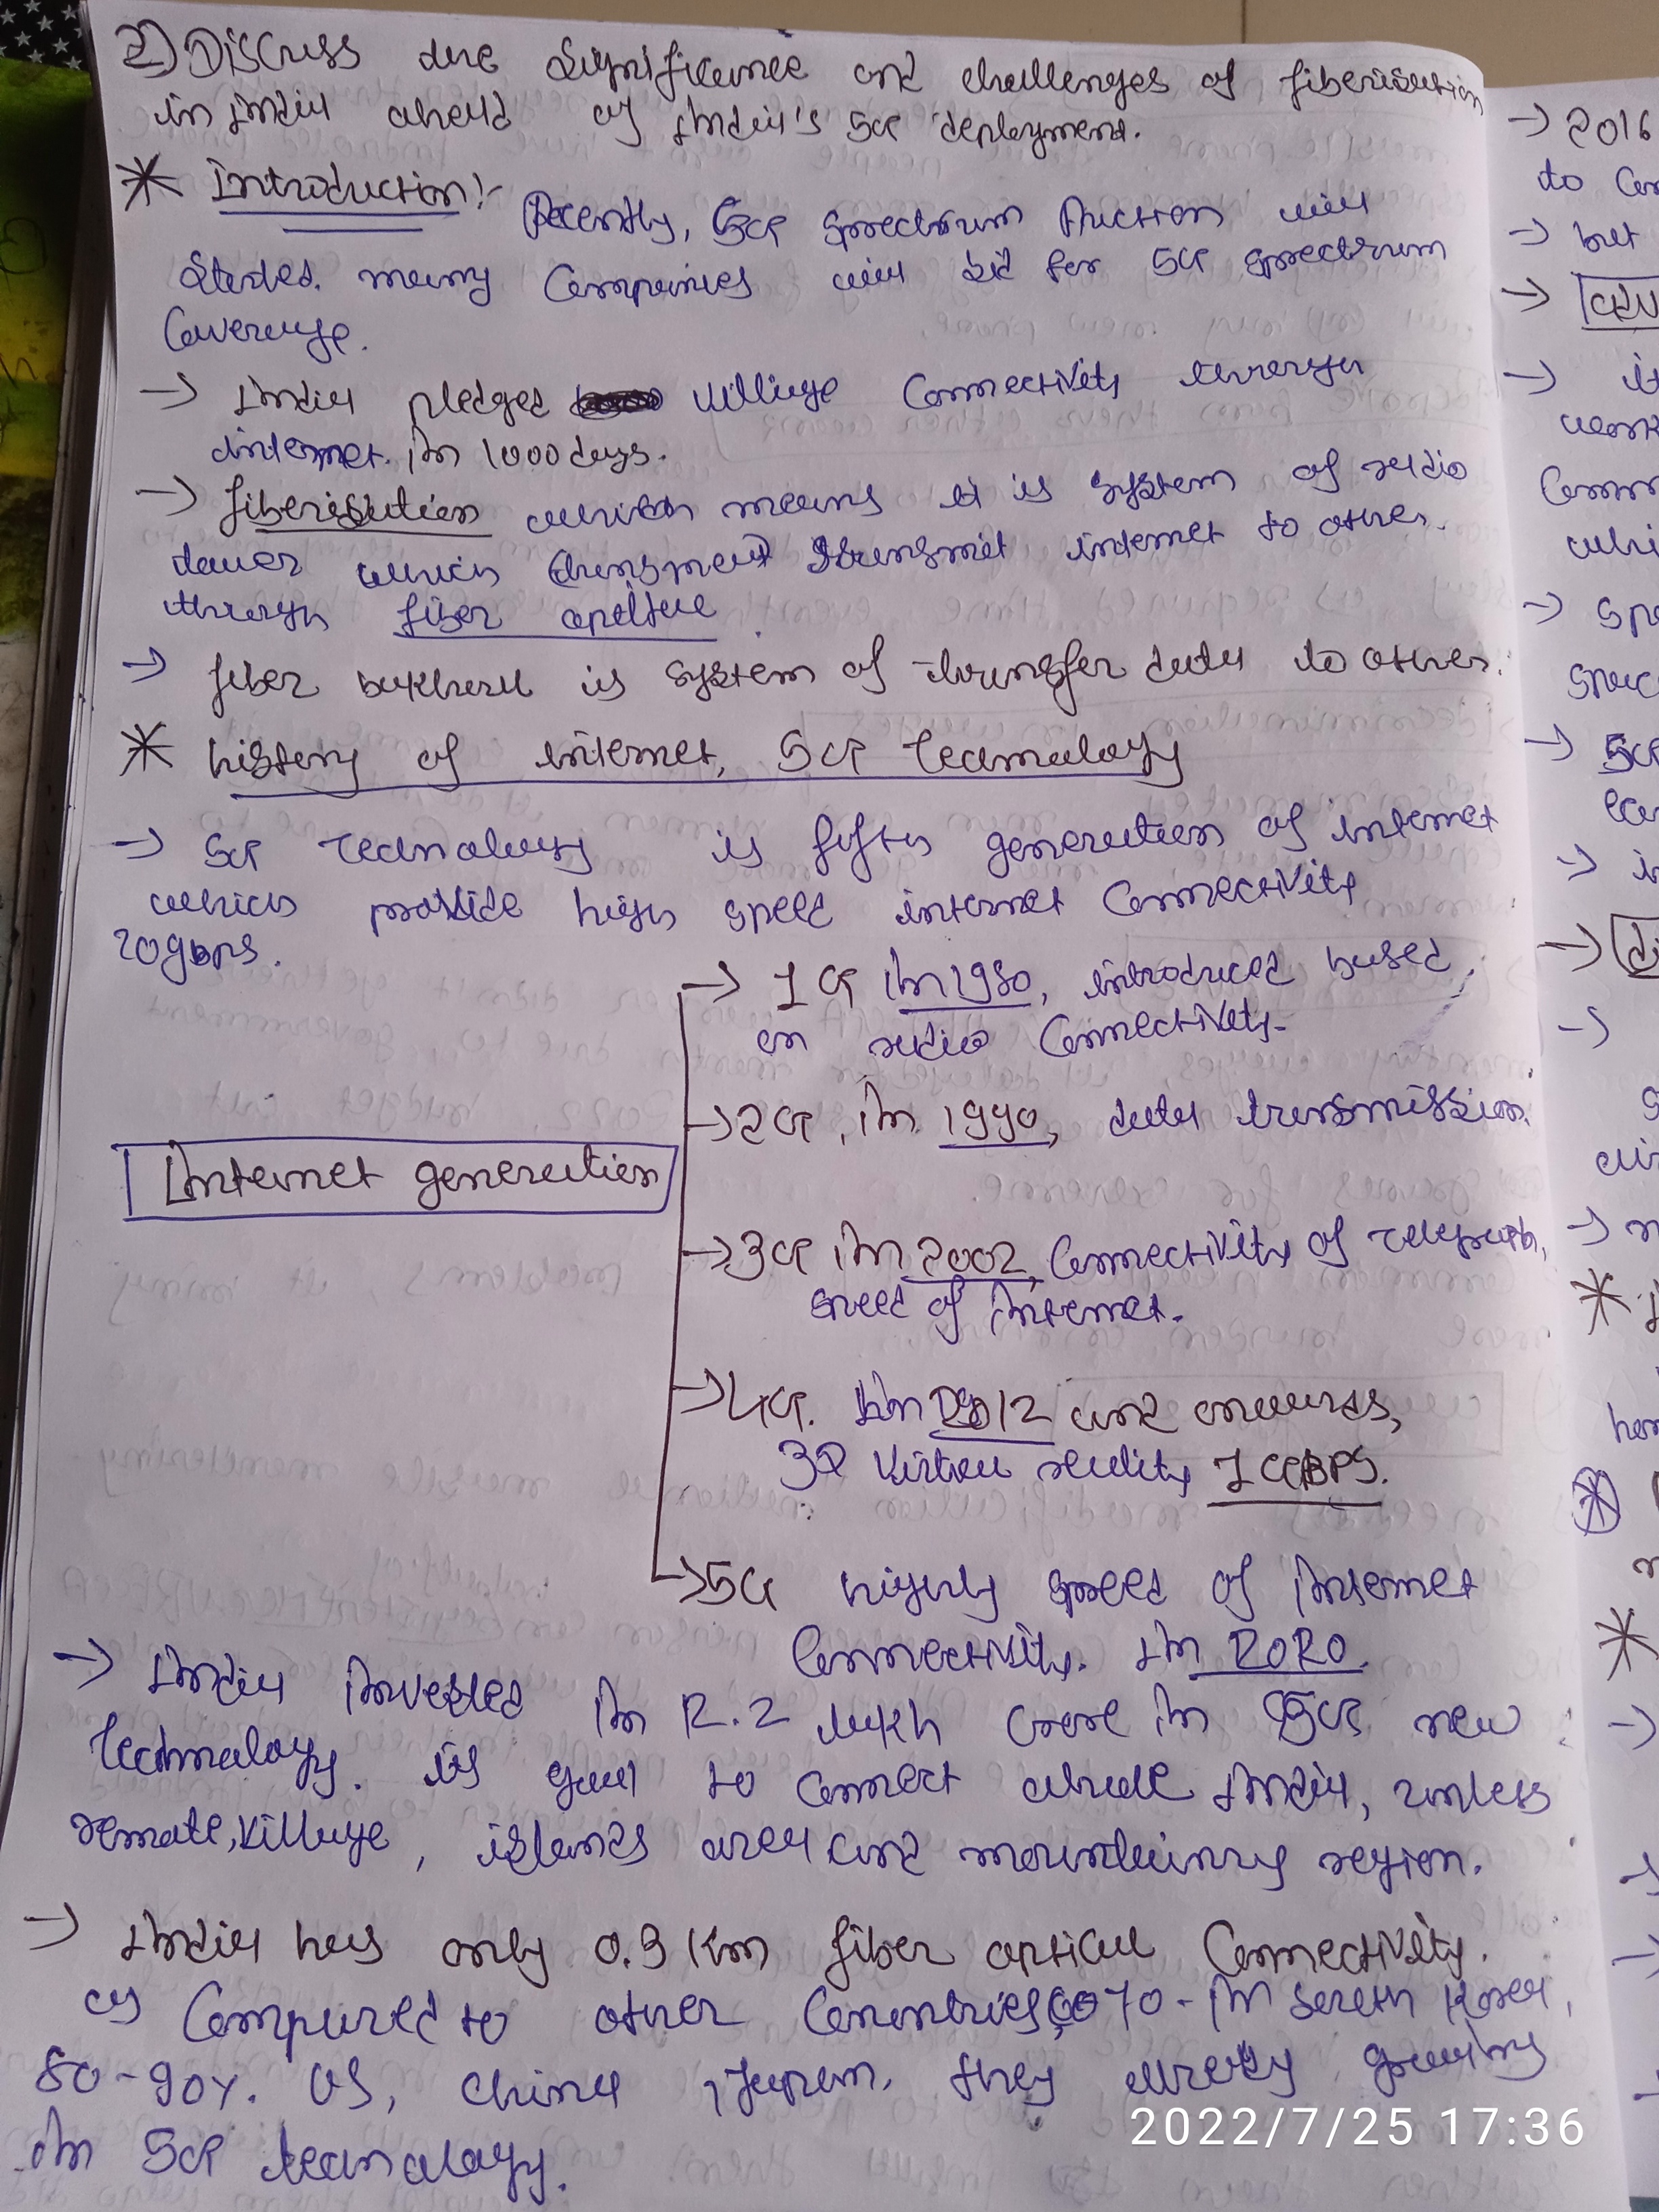 2) Discuss the significance and challenges of fiberisation
in India ahead of India's 5G deployment.
* Introduction:- Recently, 5G spectrum Auction will
started. many Companies will bid for 5G spectrum
Coverage.
→ India pledged village connectivity through
internet. in 1000 days.
→ fiberisation which means it is system of radio
tower which transmit internet to other.
through fiber
→ fiber is system of transfer data to other.
* history of internet, 5G technology
→ 5G technology is fifth generation of internet
which provide high speed internet connectivity
20gbps.
→ 1G in 1980, introduced based
on radio connectivity.
→ 2G, in 1990, data transmission.
Internet generation
→ 3G in 2002, connectivity of telegraph,
speed of internet.
→ 4G. in 2012 and onwards,
3D virtual reality 1 GBPS.
→ 5G highly speed of internet
connectivity. in 2020.
→ India invested in 2.2 lakh crore in 5G new
technology. its goal to connect whole India, unless
remote, village, islands area and mountainry region.
→ India has only 0.9 km fiber optical connectivity.
as Compared to other Countries, 70- in south Korea,
80-90%. US, China, Japan, they already
in 5G technology.
→ 2016
to
→ but
→
→ it
→
→ 5G
→
→
→
→
*
*
*
→
→
→
2022/7/25 17:36